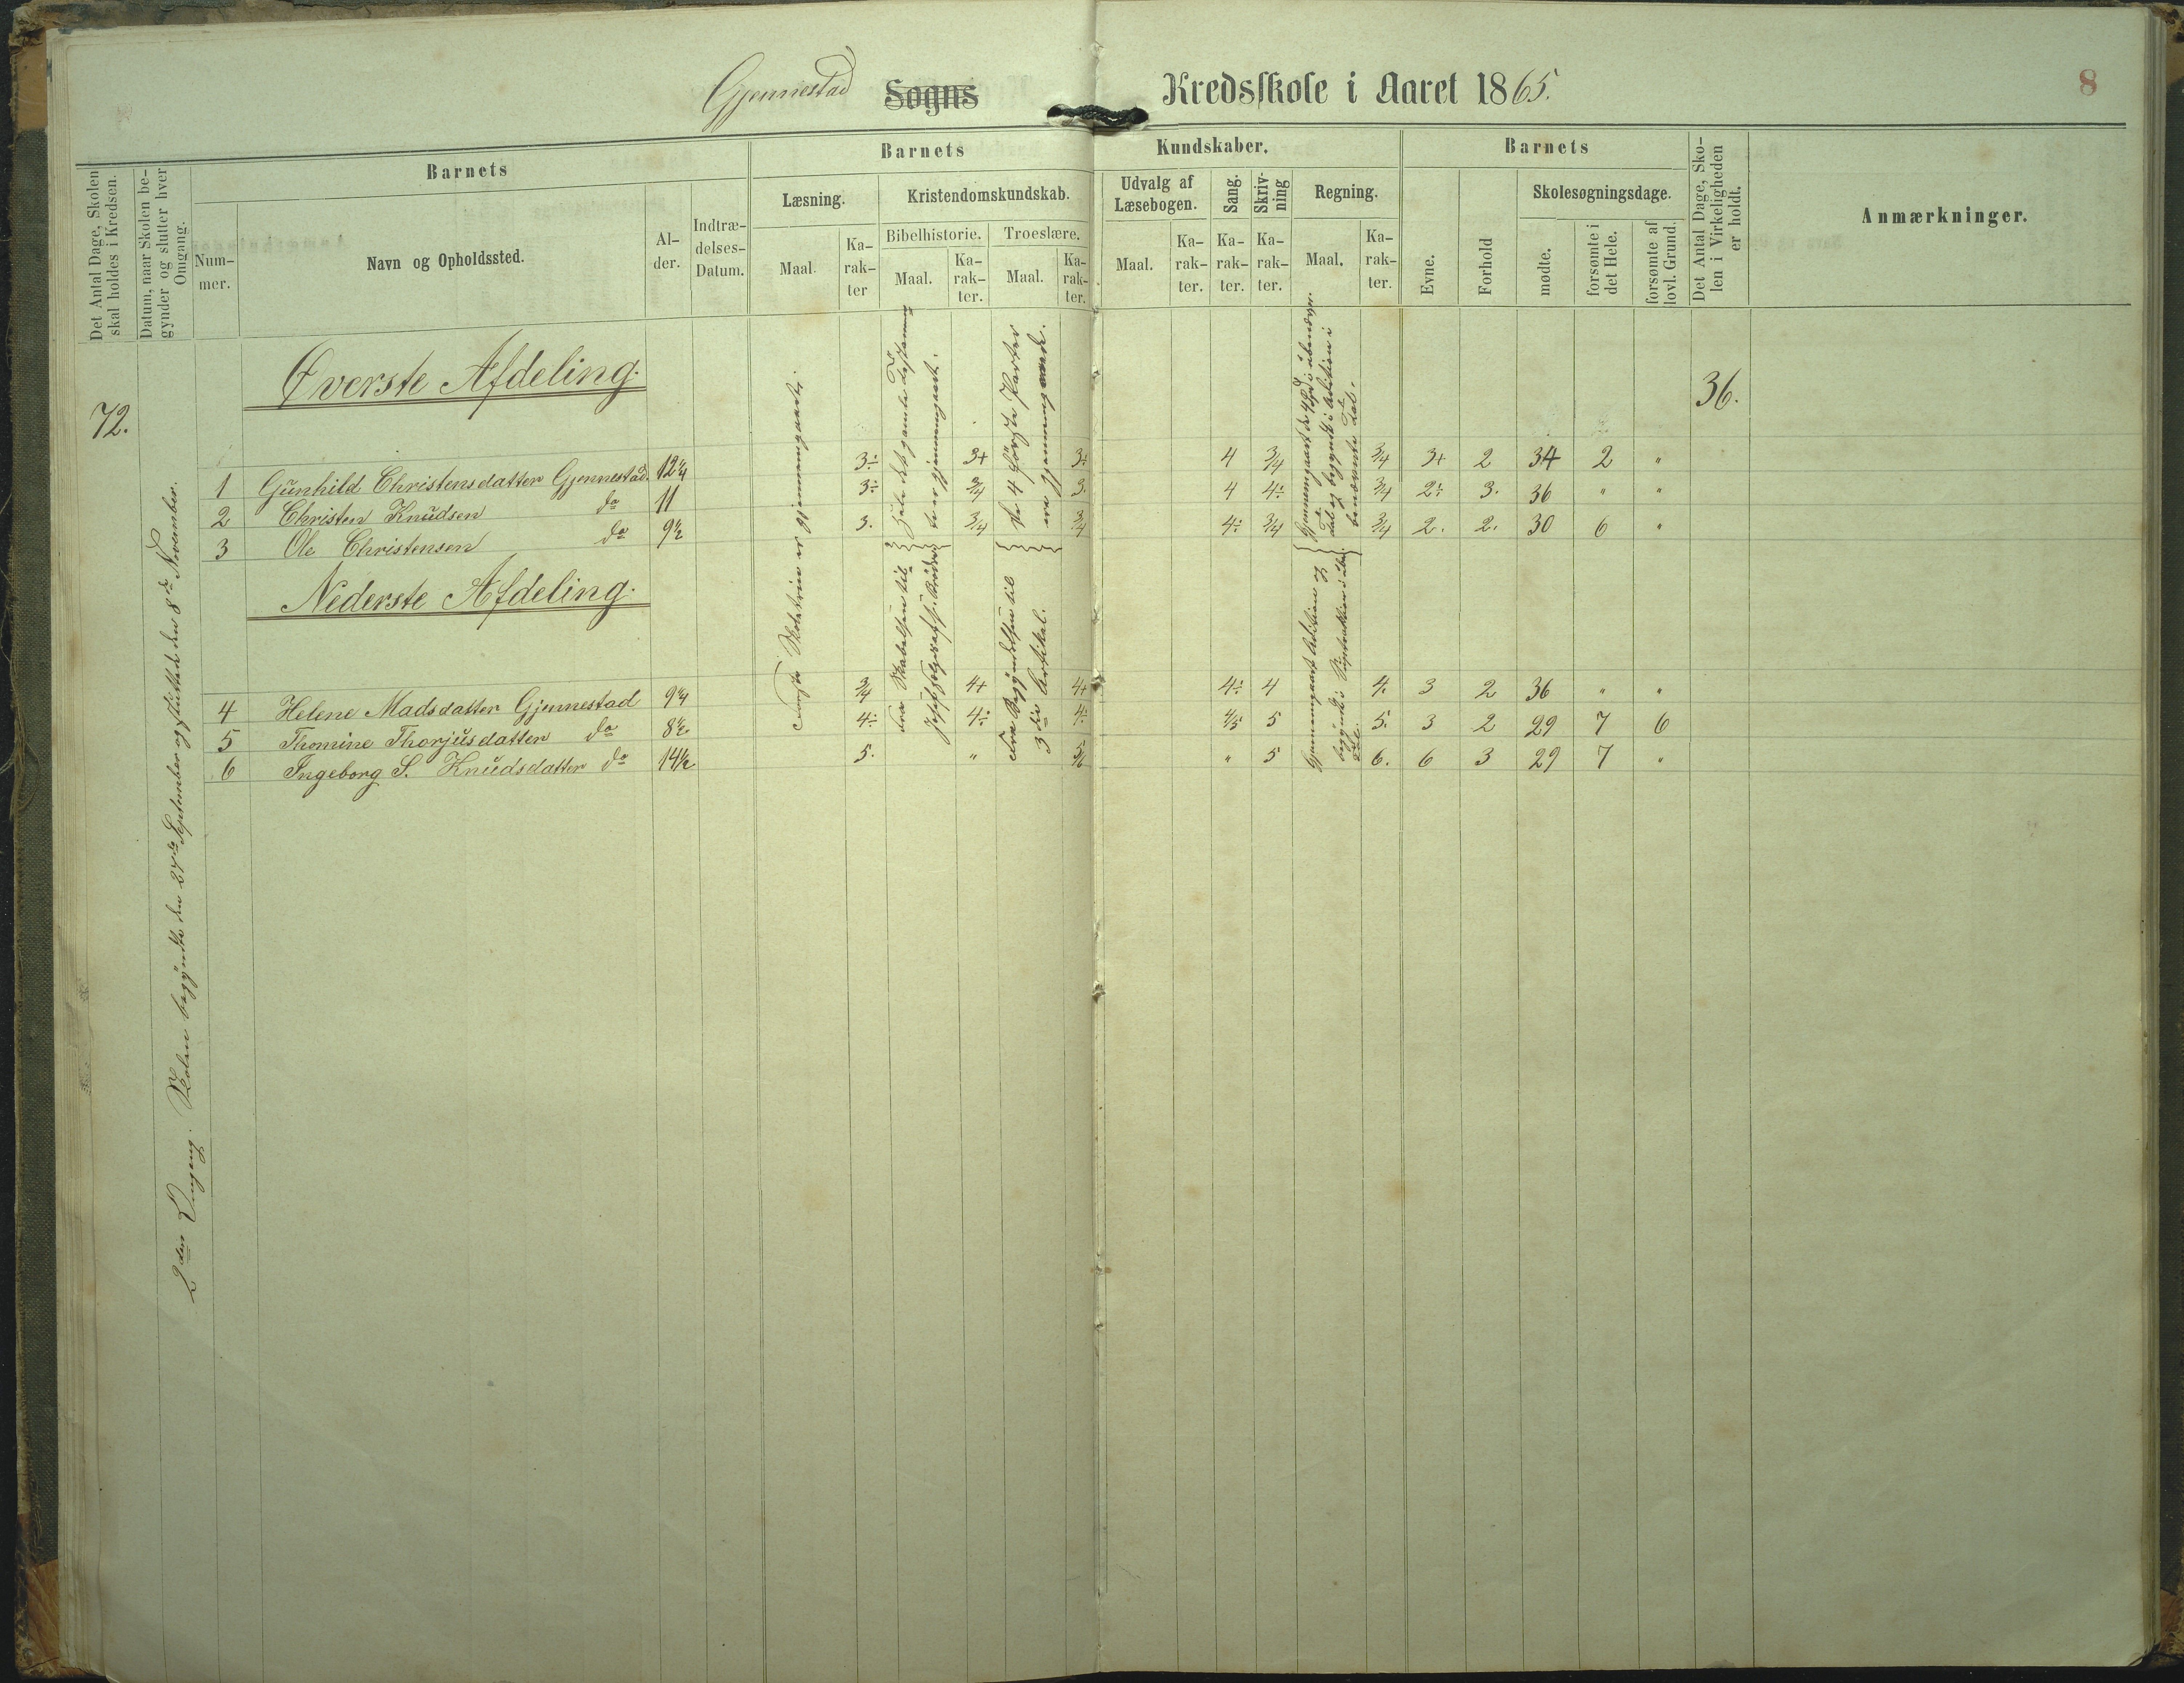 Gjennestad Sogns Kredsskole i Aaret 1865. 8
Det Antal Dage, Skolen skal holdes i Kredsen.
Datum, naar Skolen begynder og slutter hver Omgang.
Barnets
Nummer.
Navn og Opholdssted.
Alder.
Indtrædelses-Datum.
Barnets Kundskaber.
Læsning.
Maal.
Karakter
Kristendomskundskab.
Bibelhistorie.
Maal.
Karakter.
Troeslære.
Maal.
Karakter.
Udvalg af Læsebogen.
Maal.
Karakter.
Sang.
Karakter.
Skrivning
Karakter.
Regning.
Maal.
Karakter.
Barnets
Evne.
Forhold
Skolesøgningsdage.
mødte.
forsømte i det Hele.
forsømte af lovl. Grund.
Det Antal Dage, Skolen i Virkeligheden er holdt.
Anmærkninger.
72.
2den Omgang. Skolen begyndte den 27de September og sluttede den 8de November.
Øverste Afdeling.
36.
1 Gunhild Christensdatter Gjennestad. 12 1/4 3÷ 3+ 3÷ 4 3/4 3/4 3+ 2 34 2 "
2 Christen Knudsen do 11 3÷ 3/4 3. 4 4÷ 3/4 2÷ 3. 36 " "
3 Ole Christensen do 9 1/2 3. 3/4 3/4 4÷ 3/4 3/4 2. 2. 30 6 "
Nederste Afdeling.
4 Helene Madsdatter Gjennestad 9 1/4 3/4 4+ 4+ 4÷ 4 4. 3 2 36 " "
5 Thomine Thorjusdatter do 8 1/2 4÷ 4÷ 4÷ 4/5 5 5. 3 2 29 7 6
6 Ingeborg S. Knudsdatter do 14 1/2 5. " 5/6 " 5 6. 6 3 29 7 "
Første Skoletrin er gjennemgaaet.
Hele det gamle Testamente er gjennemgaaet.
De 4 første Parter ere gjennemgaaede.
Fra Skabelsen til
Fra Begyndelsen til
3die Artikel.